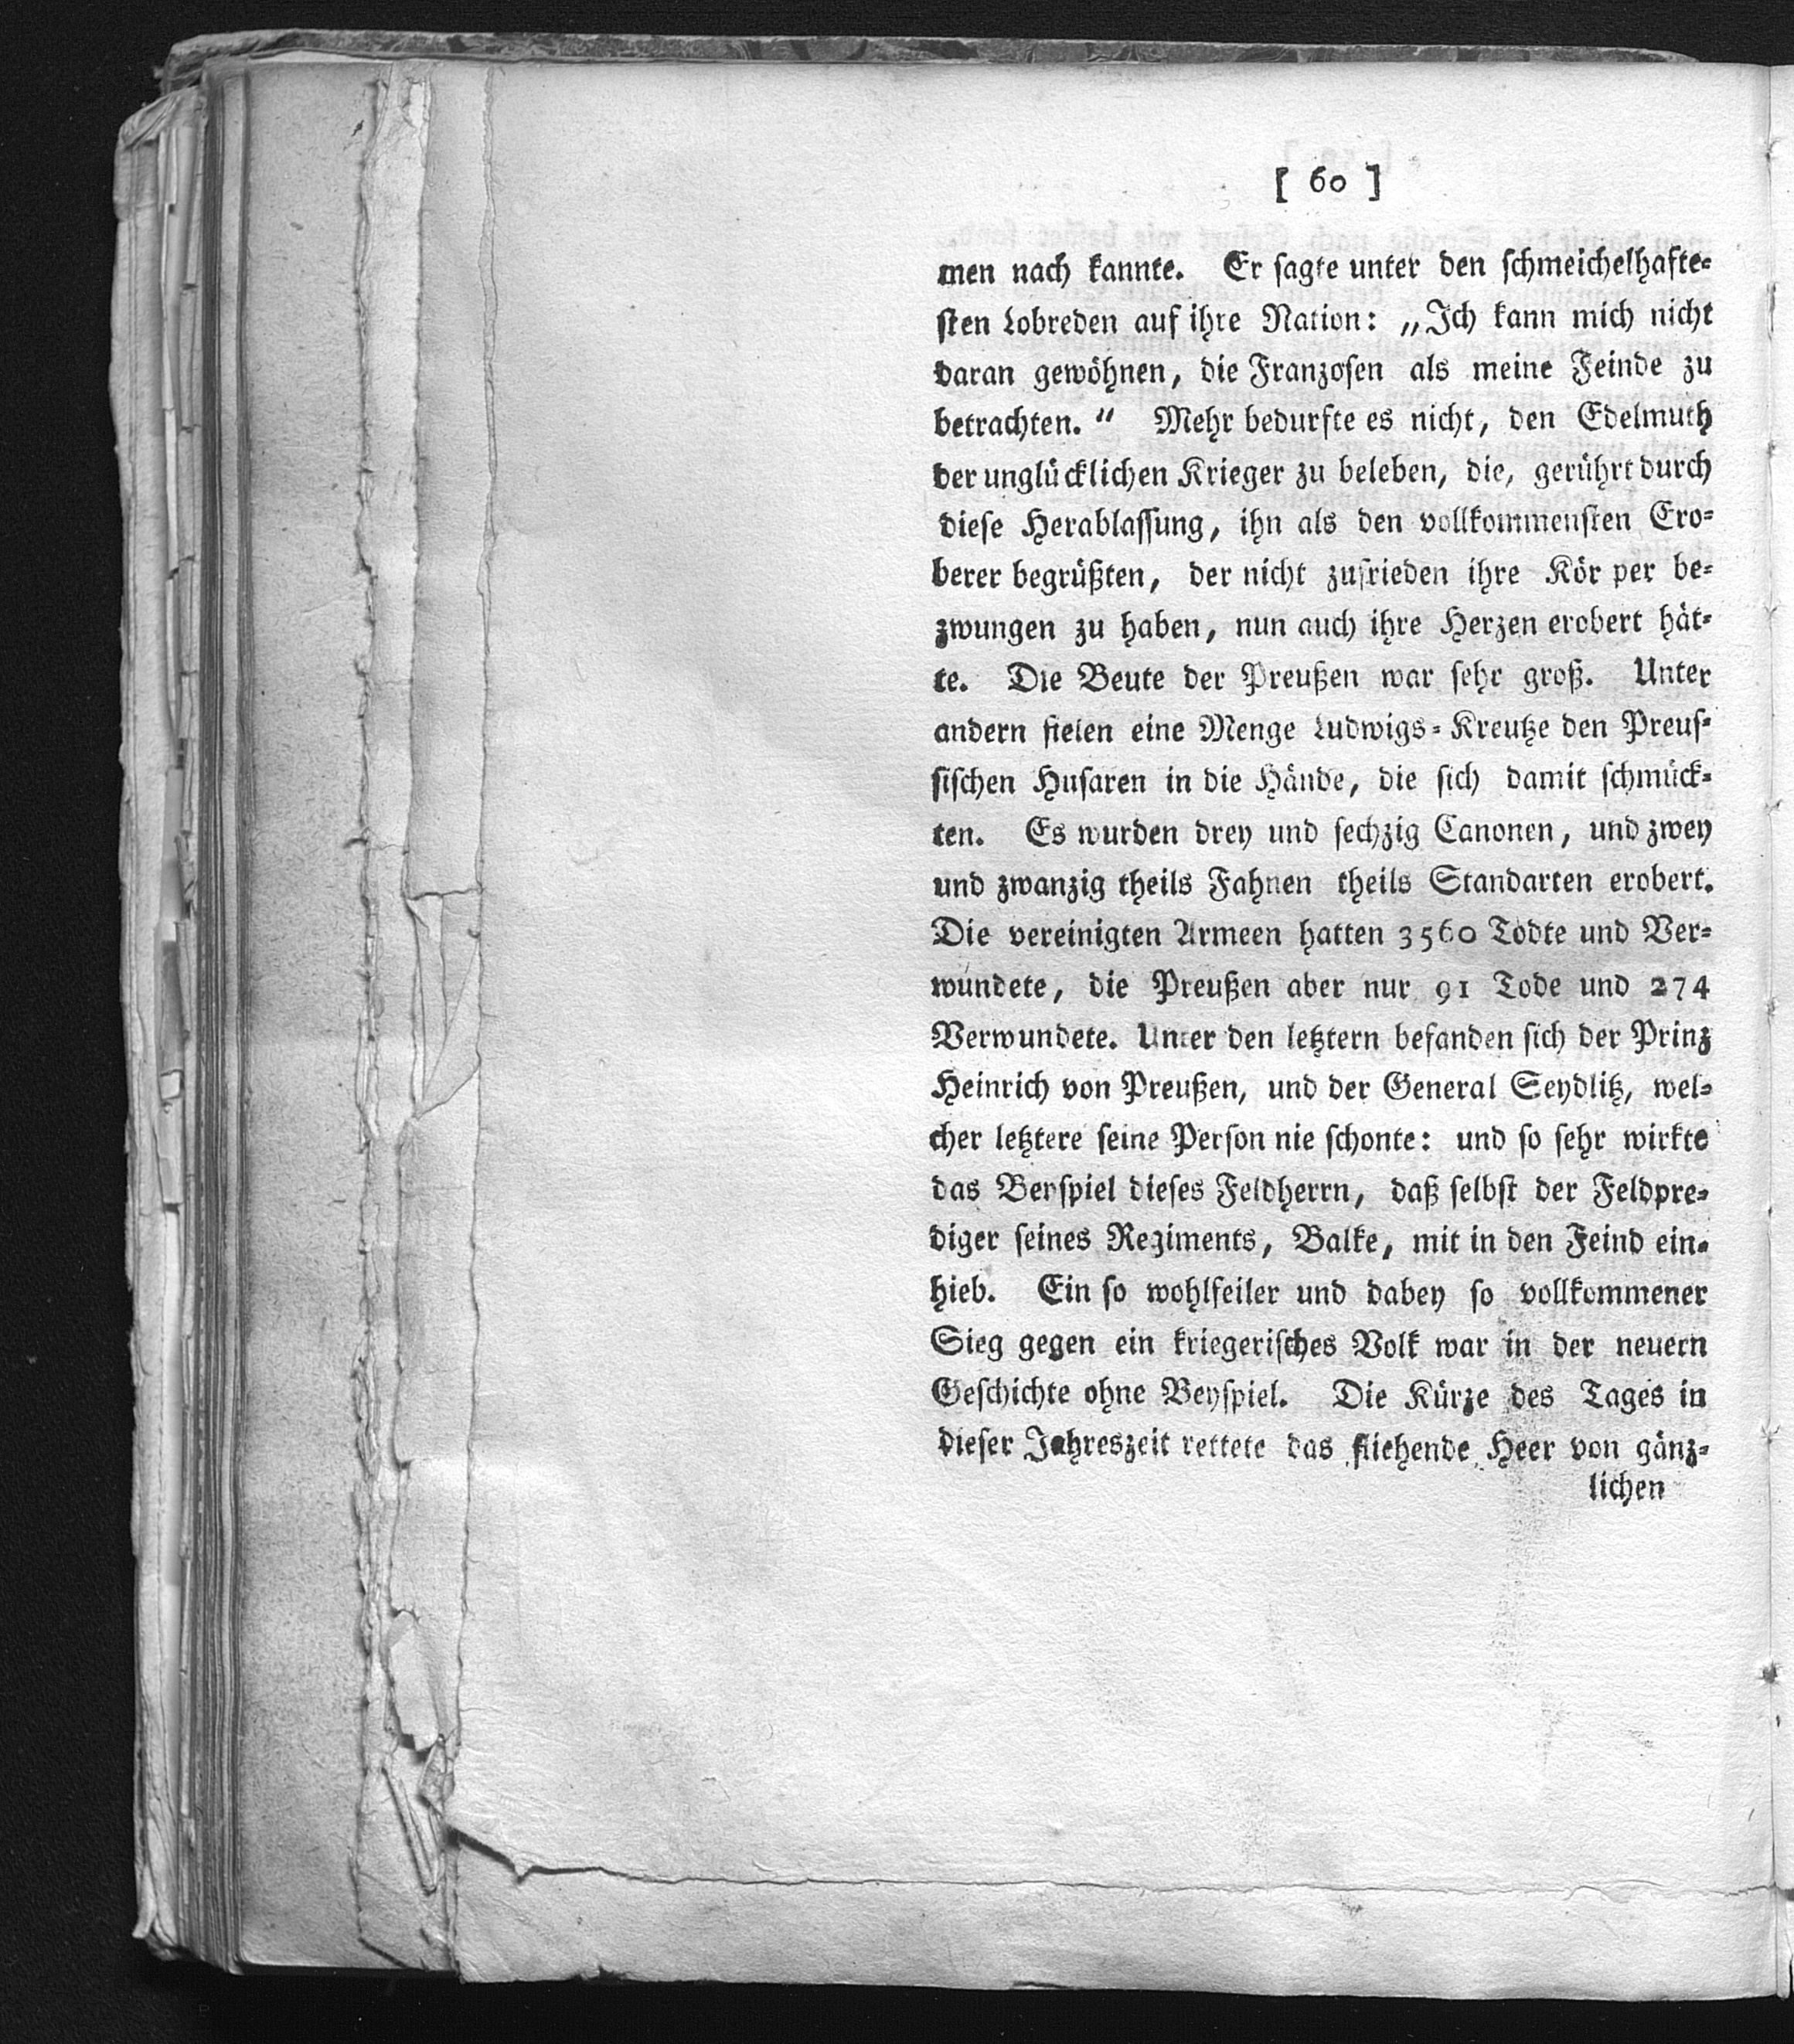 [ 60 ]
men nach kannte. Er sagte unter den schmeichelhafte-
sten Lobreden auf ihre Nation: „Ich kann mich nicht
daran gewöhnen, die Franzosen als meine Feinde zu
betrachten.“ Mehr bedurfte es nicht, den Edelmuth
der unglücklichen Krieger zu beleben, die, gerührt durch
diese Herablassung, ihn als den vollkommensten Ero-
berer begrüßten, der nicht zufrieden ihre Kör per be-
zwungen zu haben, nun auch ihre Herzen erobert hät-
te. Die Beute der Preußen war sehr groß. Unter
andern fielen eine Menge Ludwigs-Kreutze den Preus-
sischen Husaren in die Hände, die sich damit schmück-
ten. Es wurden drey und sechzig Canonen, und zwey
und zwanzig theils Fahnen theils Standarten erobert.
Die vereinigten Armeen hatten 3560 Todte und Ver-
wundete, die Preußen aber nur 91 Tode und 274
Verwundete. Unter den letztern befanden sich der Prinz
Heinrich von Preußen, und der General Seydlitz, wel-
cher letztere seine Person nie schonte: und so sehr wirkte
das Beyspiel dieses Feldherrn, daß selbst der Feldpre-
diger seines Regiments, Balke, mit in den Feind ein-
hieb. Ein so wohlfeiler und dabey so vollkommener
Sieg gegen ein kriegerisches Volk war in der neuern
Geschichte ohne Beyspiel. Die Kürze des Tages in
dieser Jahreszeit rettete das fliehende Heer von gänz-
lichen